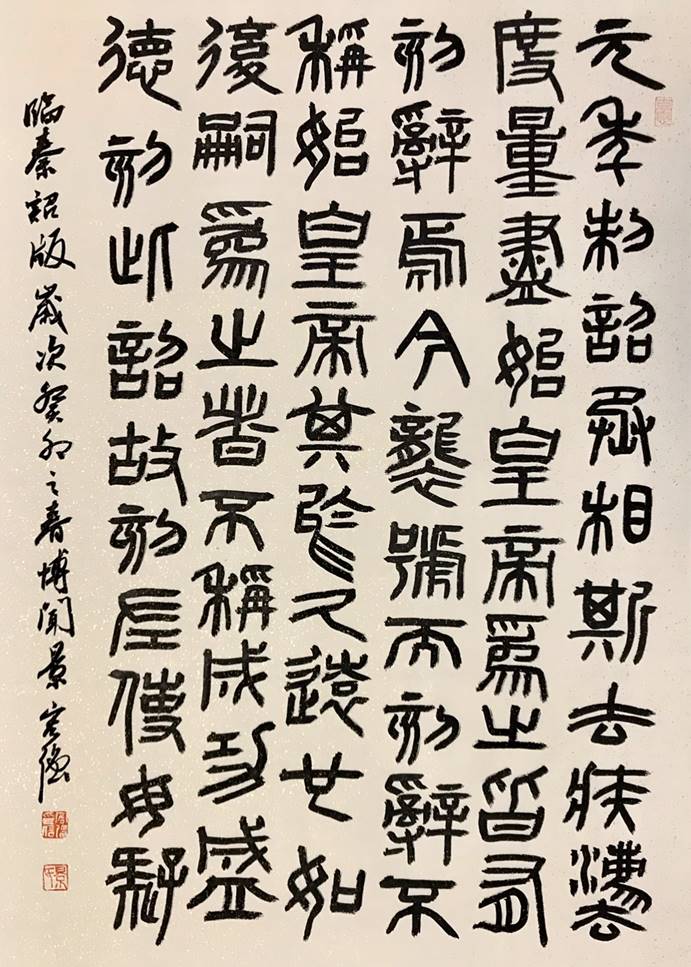 元年制詔丞相斯去疾灋
度量盡始皇帝為之皆有
刻辭焉今襲號而刻辭不
稱始皇帝其於久遠也如
後嗣為之者不稱成功盛
德刻此詔故刻左使毋疑
臨秦詔版歲次癸卯之春博聞景